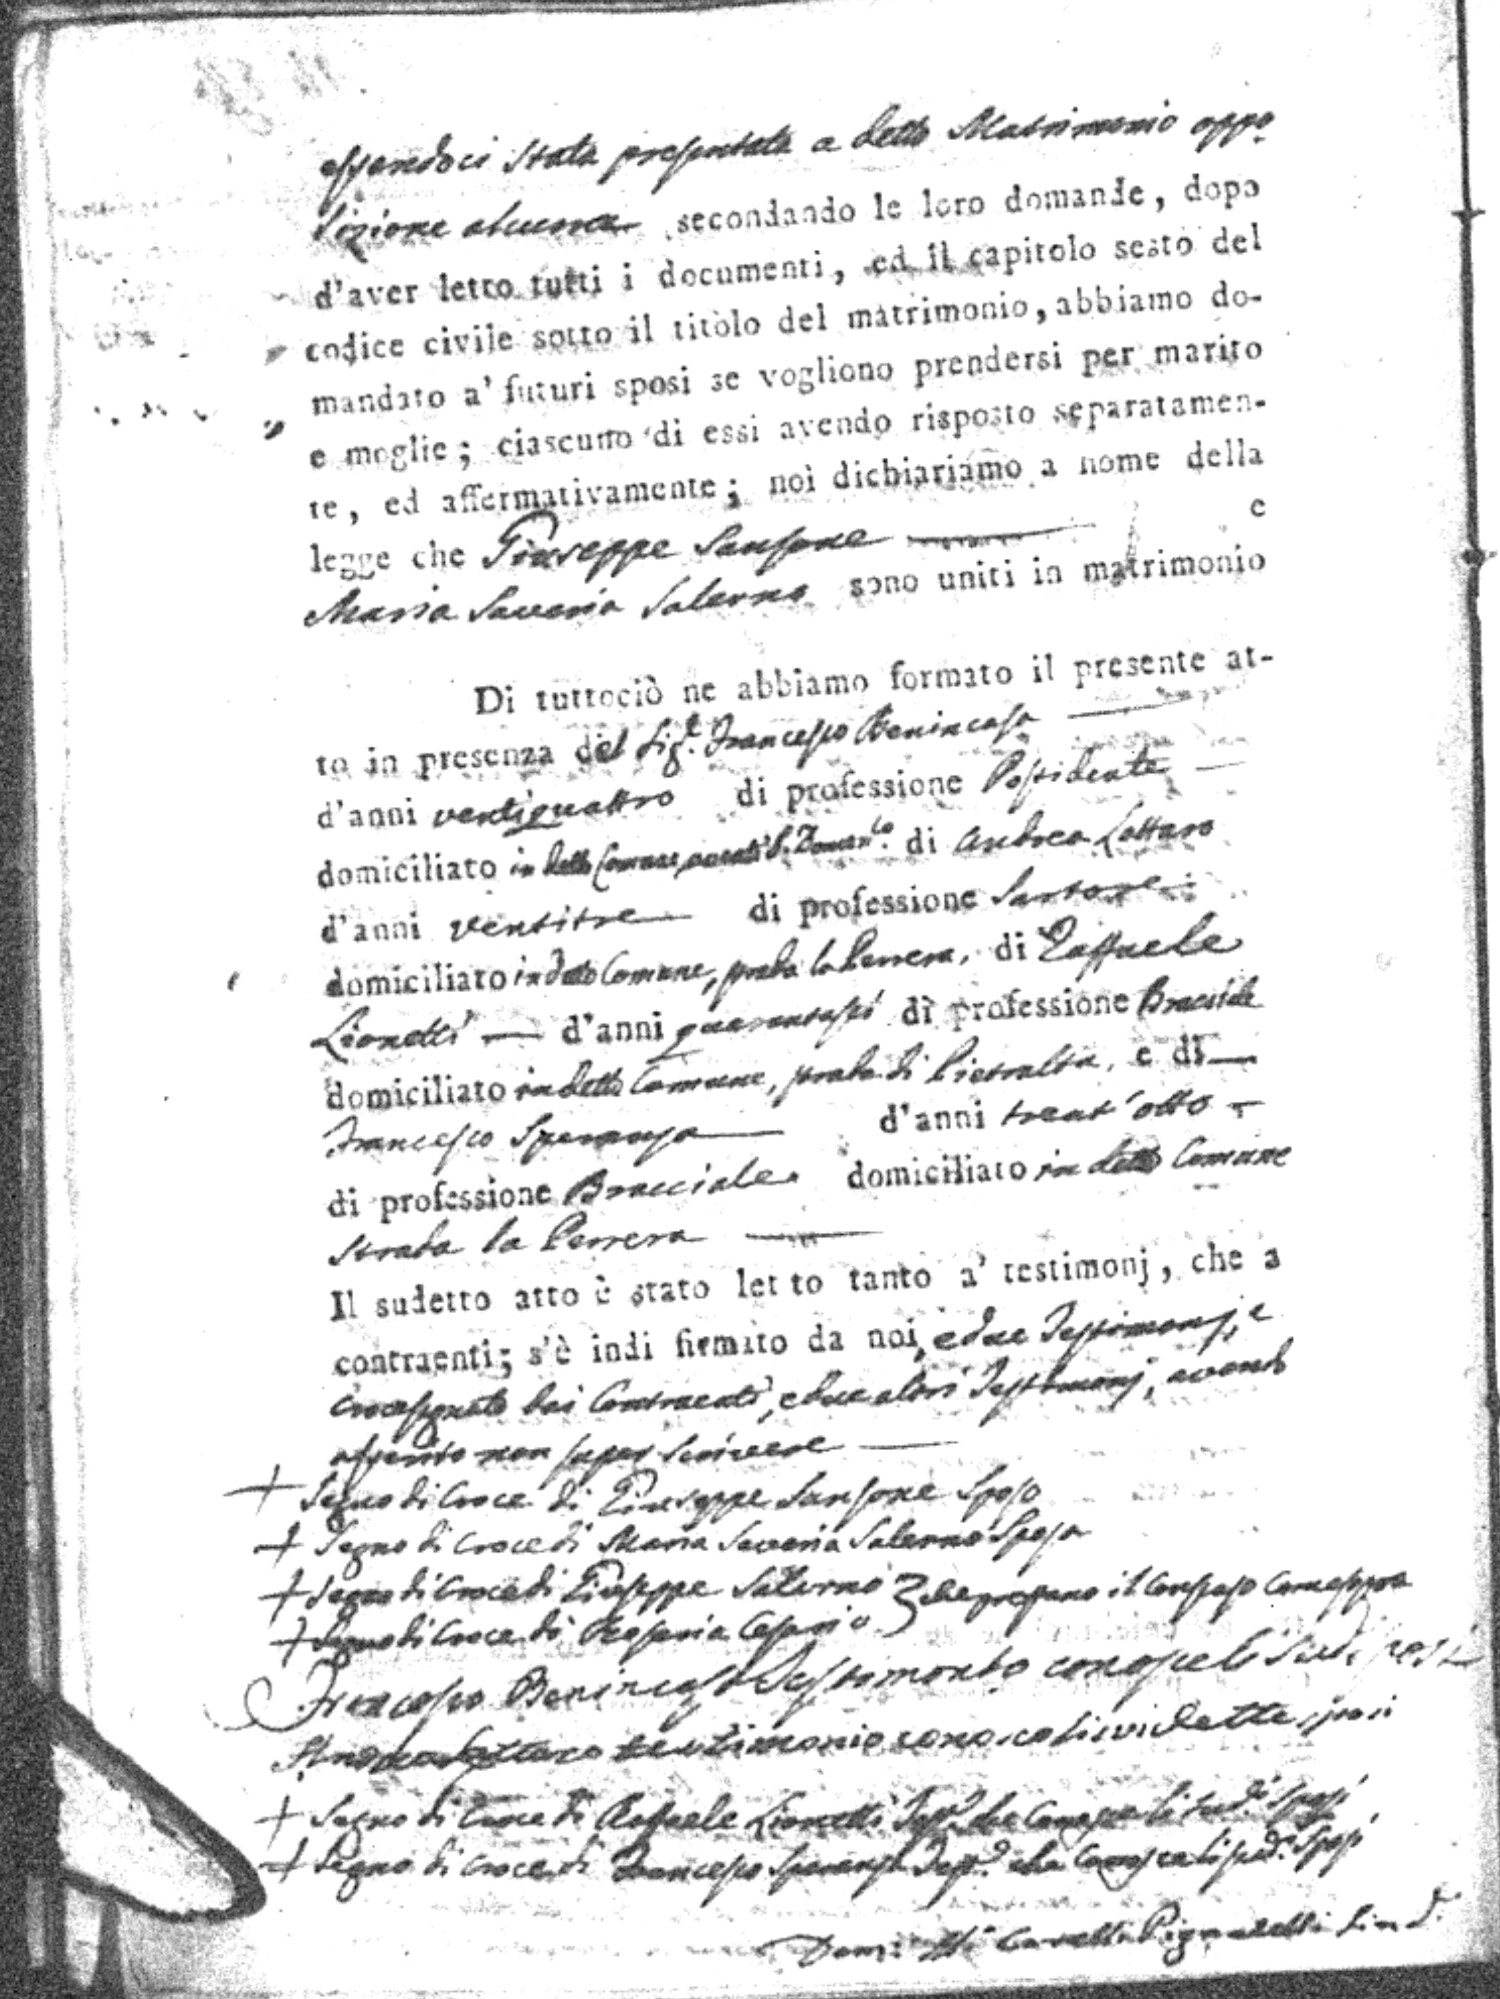 essendoci stata presentata a detto Matrimonio oppo-
sizione alcuna secondando le loro domande, dopo
d'aver letto tutti i documenti, ed il capitolo sesto del
codice civile sotto il titolo del matrimonio, abbiamo do-
mandato a' futuri sposi se vogliono prendersi per marito
e moglie; ciascuno di essi avendo risposto separatamen-
te, ed affermativamente; noi dichiariamo a nome della
legge che Giuseppe Sansone e
Maria Saveria Salerno sono uniti in matrimonio
Di tuttociò ne abbiamo formato il presente at-
to in presenza del Sig.r Francesco Benincasa
d'anni ventiquattro di professione Possidente
domiciliato in detto Comune, avanti S. Domen.co di Andrea Lattaro
d'anni ventitre di professione Sartore
domiciliato in detto Comune, strada la Perrera, di Raffaele
Lionetti d'anni quarantasei di professione Bracciale
domiciliato in detto Comune, strada di Pietralta, e di
Francesco Speranza d'anni trent'otto
di professione Bracciale domiciliato in detto Comune
strada la Perrera
Il sudetto atto è stato letto tanto a' testimonj, che a
contraenti; s'è indi firmato da noi, e due Testimonj, e
crocesegnato dai Contraenti, e due altri Testimonj, avendo
asserito non saper scrivere
+ Segno di Croce di Giuseppe Sansone Sposo
+ Segno di Croce di Maria Saveria Salerno Sposa
+ Segno di Croce di Giuseppe Salerno } che prestano il consenso come sopra
+ Segno di Croce di Rosaria Cesario
Francesco Benincasa Testimonio conosce li sud.i sposi
Andrea Lattaro testimonio conosco li suidette sposi
+ Segno di Croce di Raffaele Lionetti Test.o che Conosce li sud.i Sposi
+ Segno di Croce di Francesco Speranza Test.o che Conosce li sud.i Sposi
Dom. Pignatelli Sind.